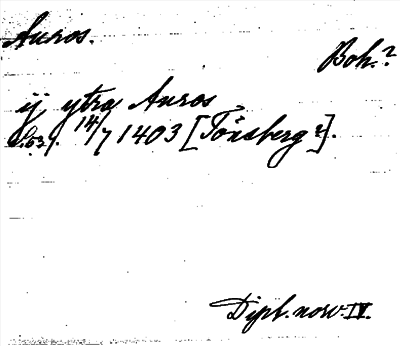 Auros.
Boh.?
ij ytra Auros
S. 637. 14/7 1403 [Tönsberg?].
Dipl. norv. IV.